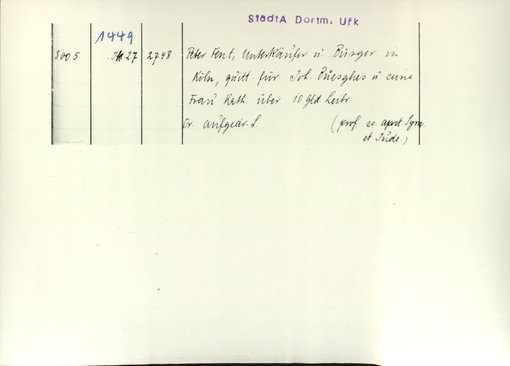 StadtA Dortm. Ufk
1449
3005 27 2748 Peter Fent, Unterkäufer u Bürger in
Köln, quitt. für Joh. u seine
Frau Kath. über 10 Gld Leibr.
Or. aufgedr. S. (prof. ss. apost Sym
et Jude)